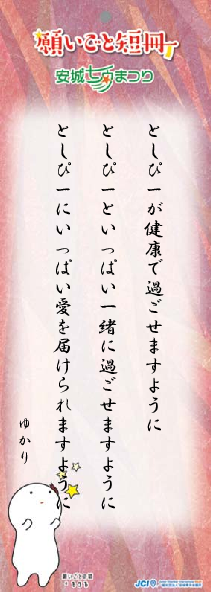 願いごと短冊
安城七夕まつり
としぴーが健康で過ごせますように
としぴーといっぱい一緒に過ごせますように
としぴーにいっぱい愛を届けられますように
ゆかり
JCI